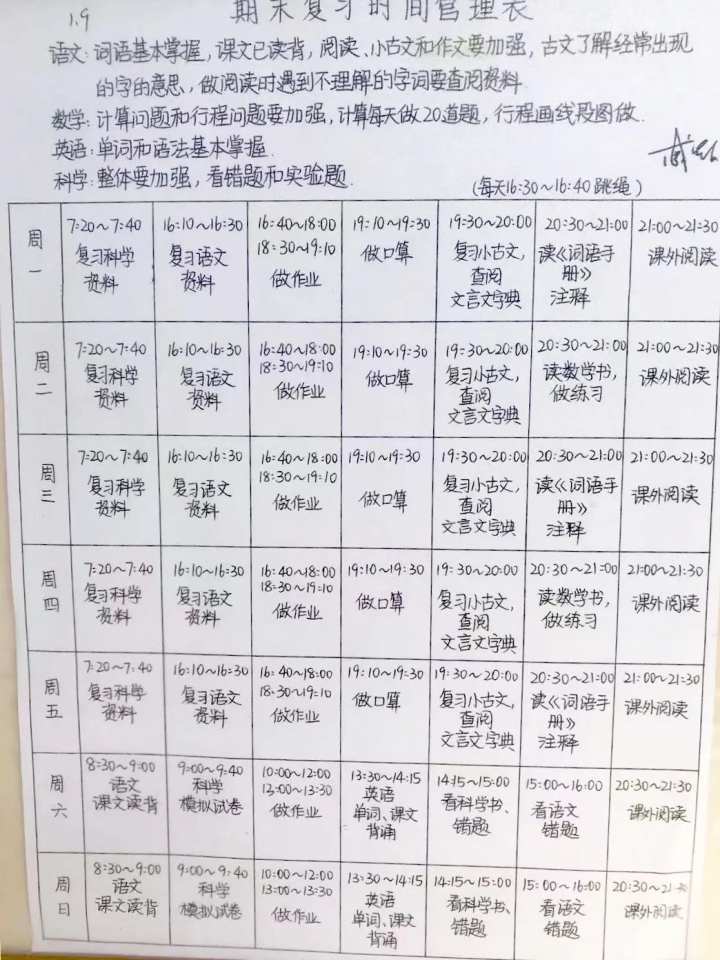 1.9
期末复习时间管理表
语文：词语基本掌握，课文已读背，阅读、小古文和作文要加强，古文了解经常出现
的字的意思，做阅读时遇到不理解的字词要查阅资料
数学：计算问题和行程问题要加强，计算每天做20道题，行程画线段图做．
英语：单词和语法基本掌握．
科学：整体要加强，看错题和实验题．
（每天16:30～16:40跳绳）
周一
7:20～7:40
复习科学
资料
16:10～16:30
复习语文
资料
16:40～18:00
18:30～19:10
做作业
19:10～19:30
做口算
19:30～20:00
复习小古文，
查阅
文言文字典
20:30～21:00
读《词语手
册》
注释
21:00～21:30
课外阅读
周二
7:20～7:40
复习科学
资料
16:10～16:30
复习语文
资料
16:40～18:00
18:30～19:10
做作业
19:10～19:30
做口算
19:30～20:00
复习小古文，
查阅
文言文字典
20:30～21:00
读数学书，
做练习
21:00～21:30
课外阅读
周三
7:20～7:40
复习科学
资料
16:10～16:30
复习语文
资料
16:40～18:00
18:30～19:10
做作业
19:10～19:30
做口算
19:30～20:00
复习小古文，
查阅
文言文字典
20:30～21:00
读《词语手
册》
注释
21:00～21:30
课外阅读
周四
7:20～7:40
复习科学
资料
16:10～16:30
复习语文
资料
16:40～18:00
18:30～19:10
做作业
19:10～19:30
做口算
19:30～20:00
复习小古文，
查阅
文言文字典
20:30～21:00
读数学书，
做练习
21:00～21:30
课外阅读
周五
7:20～7:40
复习科学
资料
16:10～16:30
复习语文
资料
16:40～18:00
18:30～19:10
做作业
19:10～19:30
做口算
19:30～20:00
复习小古文，
查阅
文言文字典
20:30～21:00
读《词语手
册》
注释
21:00～21:30
课外阅读
周六
8:30～9:00
语文
课文读背
9:00～9:40
科学
模拟试卷
10:00～12:00
13:00～13:30
做作业
13:30～14:15
英语
单词、课文
背诵
14:15～15:00
看科学书、
错题
15:00～16:00
看语文
错题
20:30～21:30
课外阅读
周日
8:30～9:00
语文
课文读背
9:00～9:40
科学
模拟试卷
10:00～12:00
13:00～13:30
做作业
13:30～14:15
英语
单词、课文
背诵
14:15～15:00
看科学书、
错题
15:00～16:00
看语文
错题
20:30～21:30
课外阅读